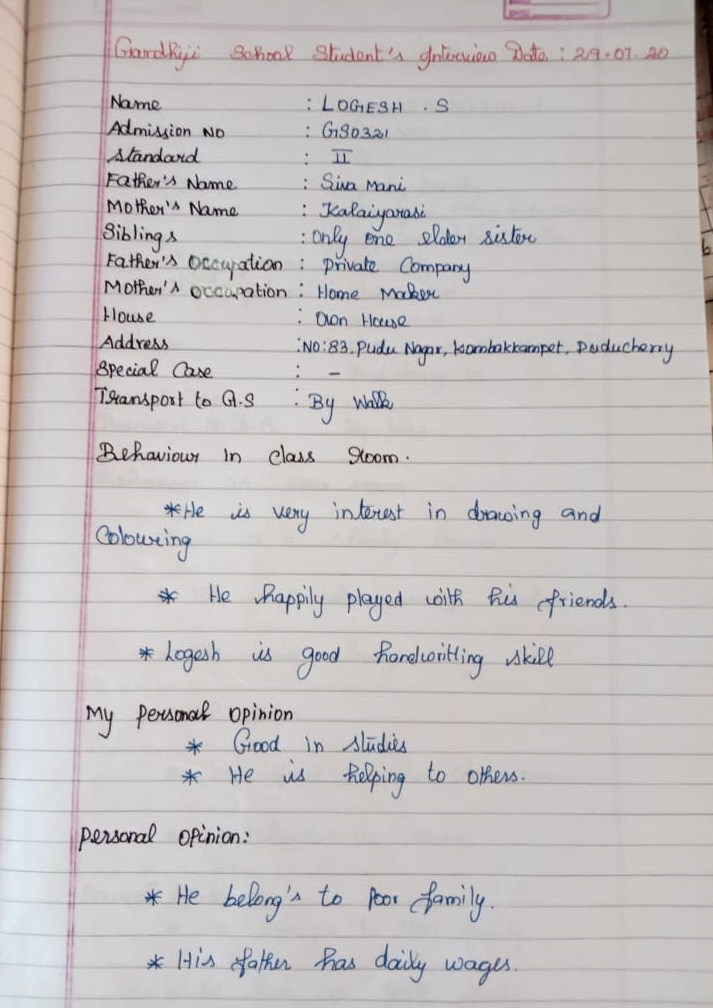 Gandhiji School Student's Interview Date : 29.07.20
Name : LOGESH . S
Admission NO : GS0321
Standard : II
Father's Name : Siva Mani
Mother's Name : Kalaiyarasi
Siblings : only one elder sister
Father's Occupation : Private Company
Mother's Occupation : Home Maker
House : Own House
Address : NO:83, Pudu Nagar, kombakkampet, Puducherry
Special Case : -
Transport to G.S : By Walk
Behaviour in class room.
* He is very interest in drawing and
Colouring
* He happily played with his friends.
* Logesh is good handwritting skill
My personal opinion
* Good in studies
* He is helping to others.
personal opinion:
* He belong's to poor family.
* His father has daily wages.